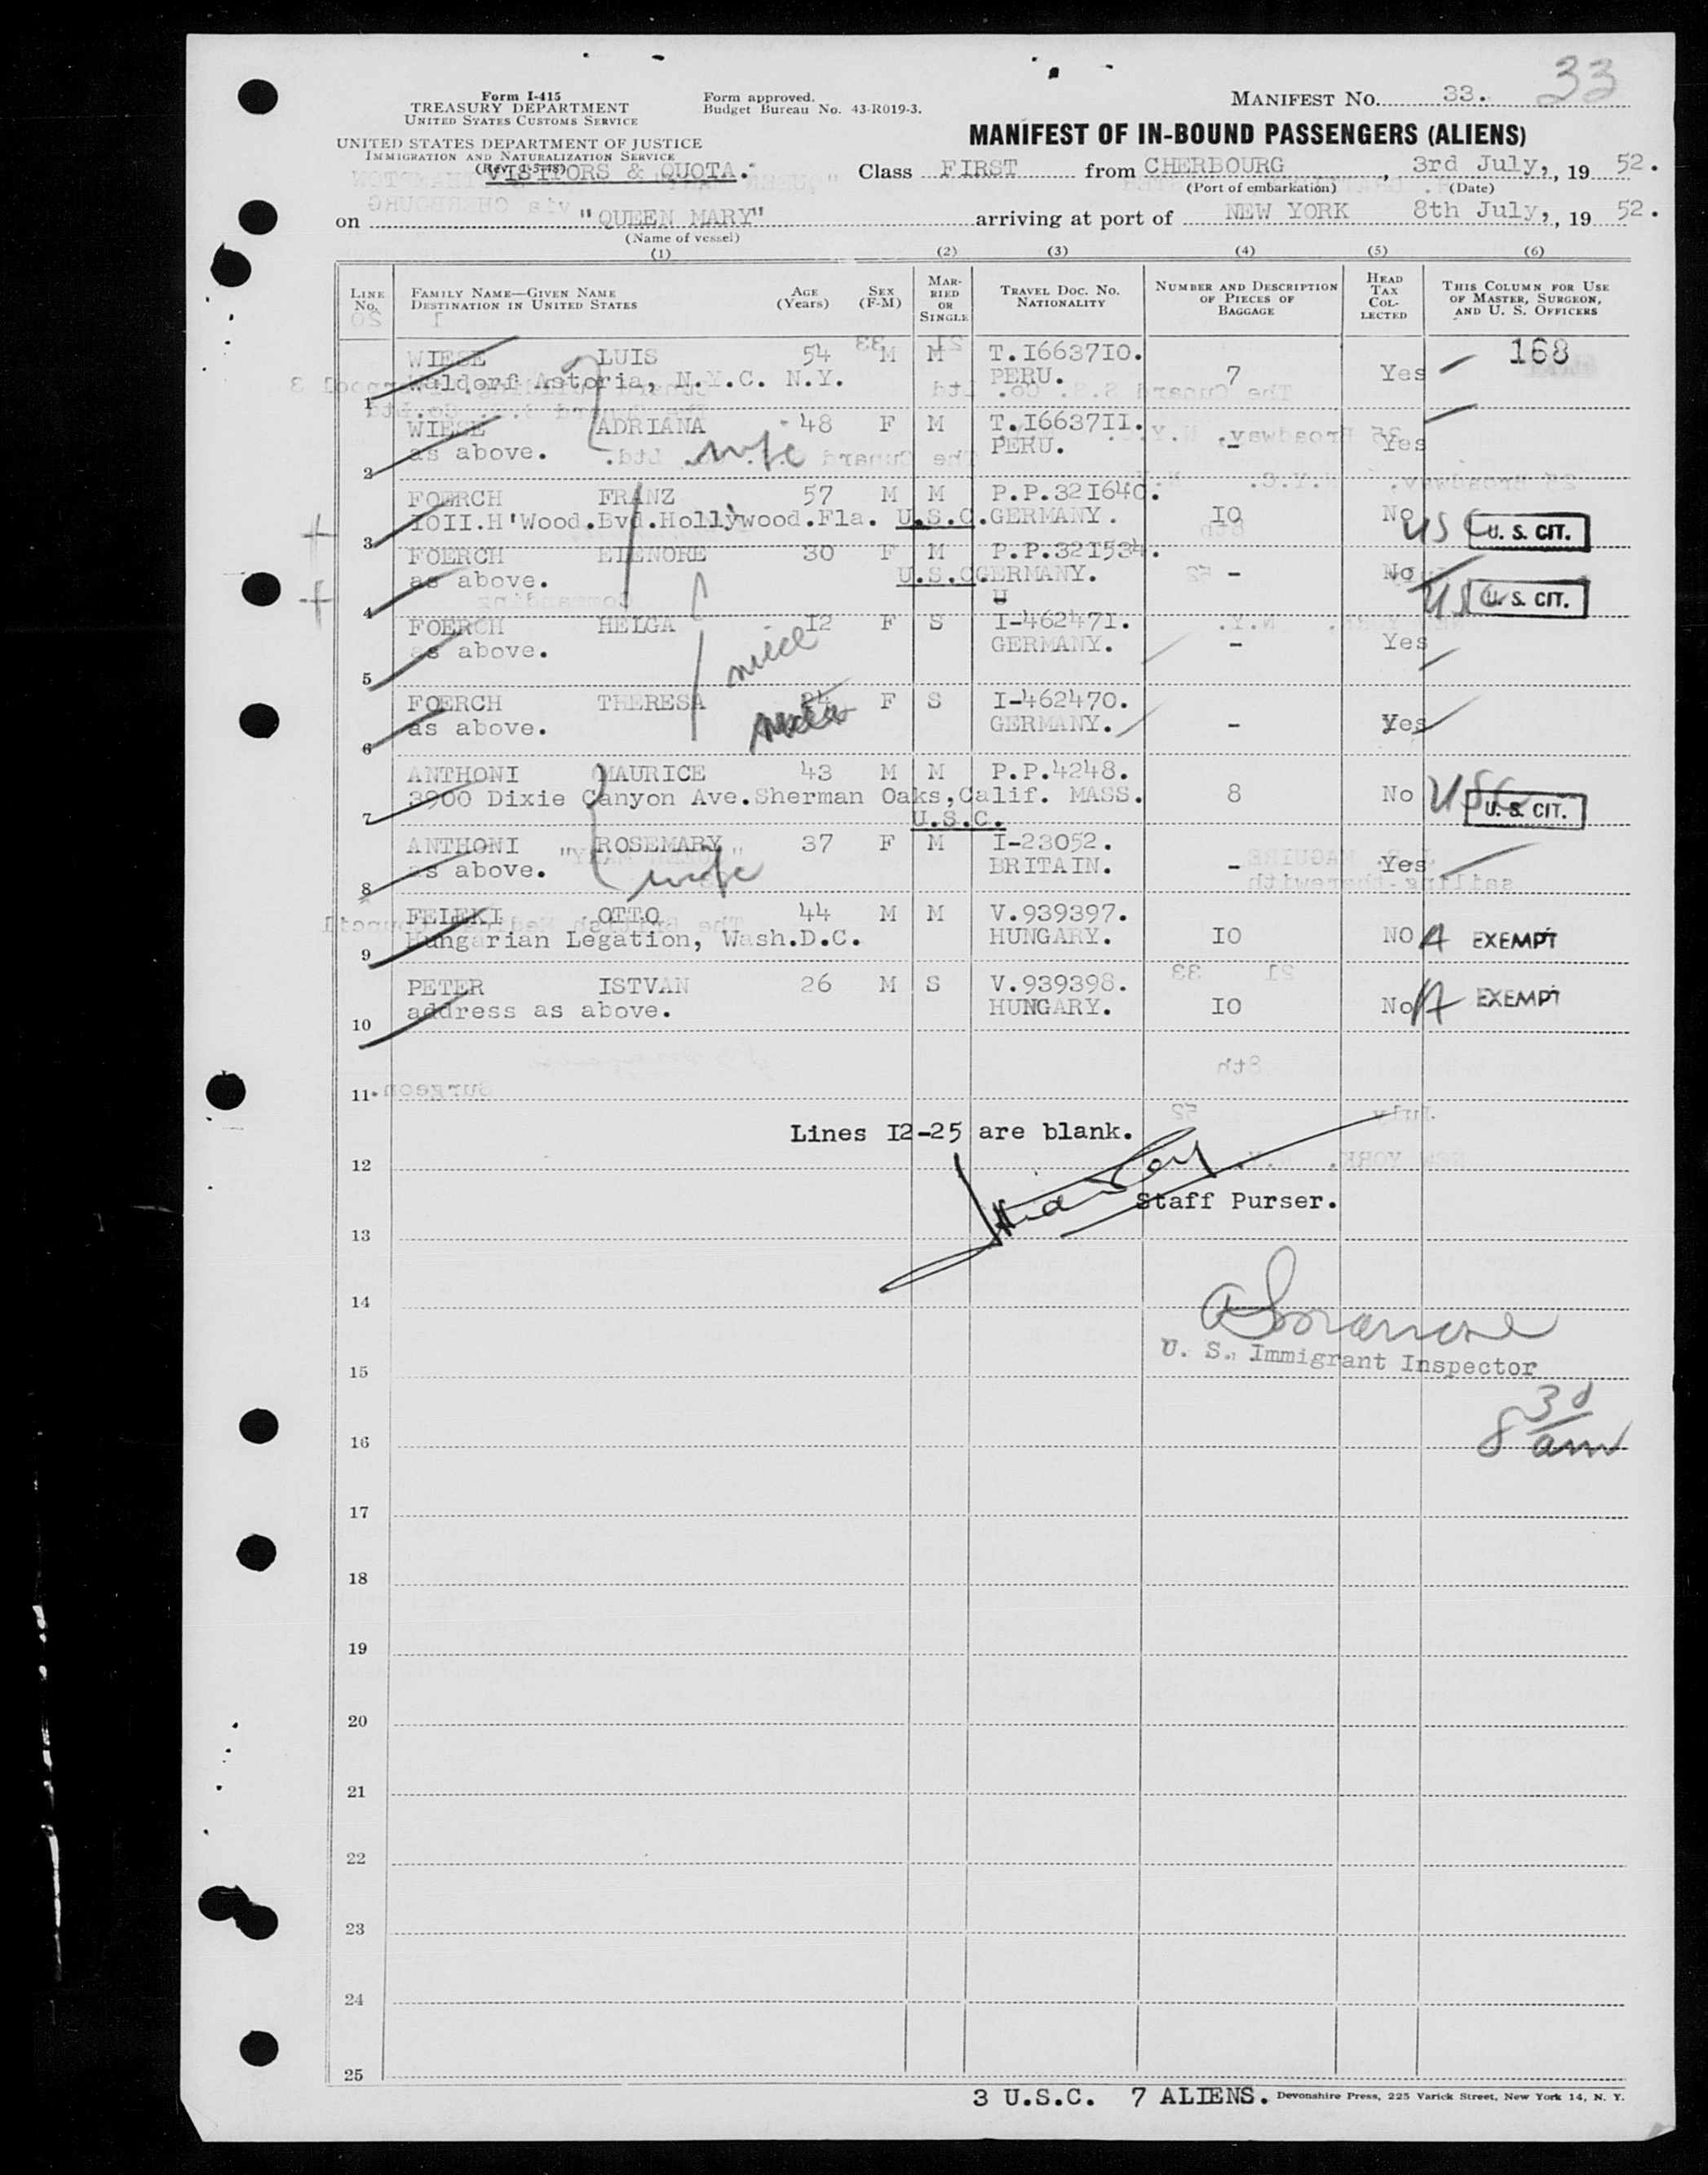 33
Form I-415
TREASURY DEPARTMENT
UNITED STATES CUSTOMS SERVICE
Form approved.
Budget Bureau No. 43-R019-3.
MANIFEST NO. 33.
UNITED STATES DEPARTMENT OF JUSTICE
IMMIGRATION AND NATURALIZATION SERVICE
MANIFEST OF IN-BOUND PASSENGERS (ALIENS)
VISITORS & QUOTA.
Class FIRST from CHERBOURG, 3rd July, 1952.
(Port of embarkation) (Date)
on "QUEEN MARY" arriving at port of NEW YORK 8th July, 1952.
(Name of vessel)
(1) (2) (3) (4) (5) (6)
LINE NO. FAMILY NAME—GIVEN NAME DESTINATION IN UNITED STATES AGE (YEARS) SEX (F-M) MARRIED OR SINGLE TRAVEL DOC. NO. NATIONALITY NUMBER AND DESCRIPTION OF PIECES OF BAGGAGE HEAD TAX COLLECTED THIS COLUMN FOR USE OF MASTER, SURGEON, AND U. S. OFFICERS
WIESE LUIS 54 M M T.I6637IO. 168
1 Waldorf Astoria, N.Y.C. N.Y. PERU. 7 Yes
WIESE ADRIANA 48 F M T.I6637II.
2 as above. wife PERU. - Yes
FOERCH FRANZ 57 M M P.P.32I640.
3 IOII.H'Wood.Bvd.Hollywood.Fla. U.S.C. GERMANY. IO No USC U. S. CIT.
FOERCH ELENORE 30 F M P.P.32I534.
4 as above. U.S.C. GERMANY. - No USC U. S. CIT.
FOERCH HELGA I2 F S I-46247I.
5 as above. niece GERMANY. - Yes
FOERCH THERESA F S I-462470.
6 as above. GERMANY. - Yes
ANTHONI MAURICE 43 M M P.P.4248.
7 3900 Dixie Canyon Ave.Sherman Oaks,Calif. MASS. 8 No USC U. S. CIT.
U.S.C.
ANTHONI ROSEMARY 37 F M I-23052.
8 as above. wife BRITAIN. - Yes
OTTO 44 M M V.939397.
9 Hungarian Legation, Wash.D.C. HUNGARY. IO NO A EXEMPT
PETER ISTVAN 26 M S V.939398.
10 address as above. HUNGARY. IO No A EXEMPT
11
Lines I2-25 are blank.
12
Staff Purser.
13
14
U. S. Immigrant Inspector
15
8 30/am
16
17
18
19
20
21
22
23
24
25
3 U.S.C. 7 ALIENS. Devonshire Press, 225 Varick Street, New York 14, N. Y.